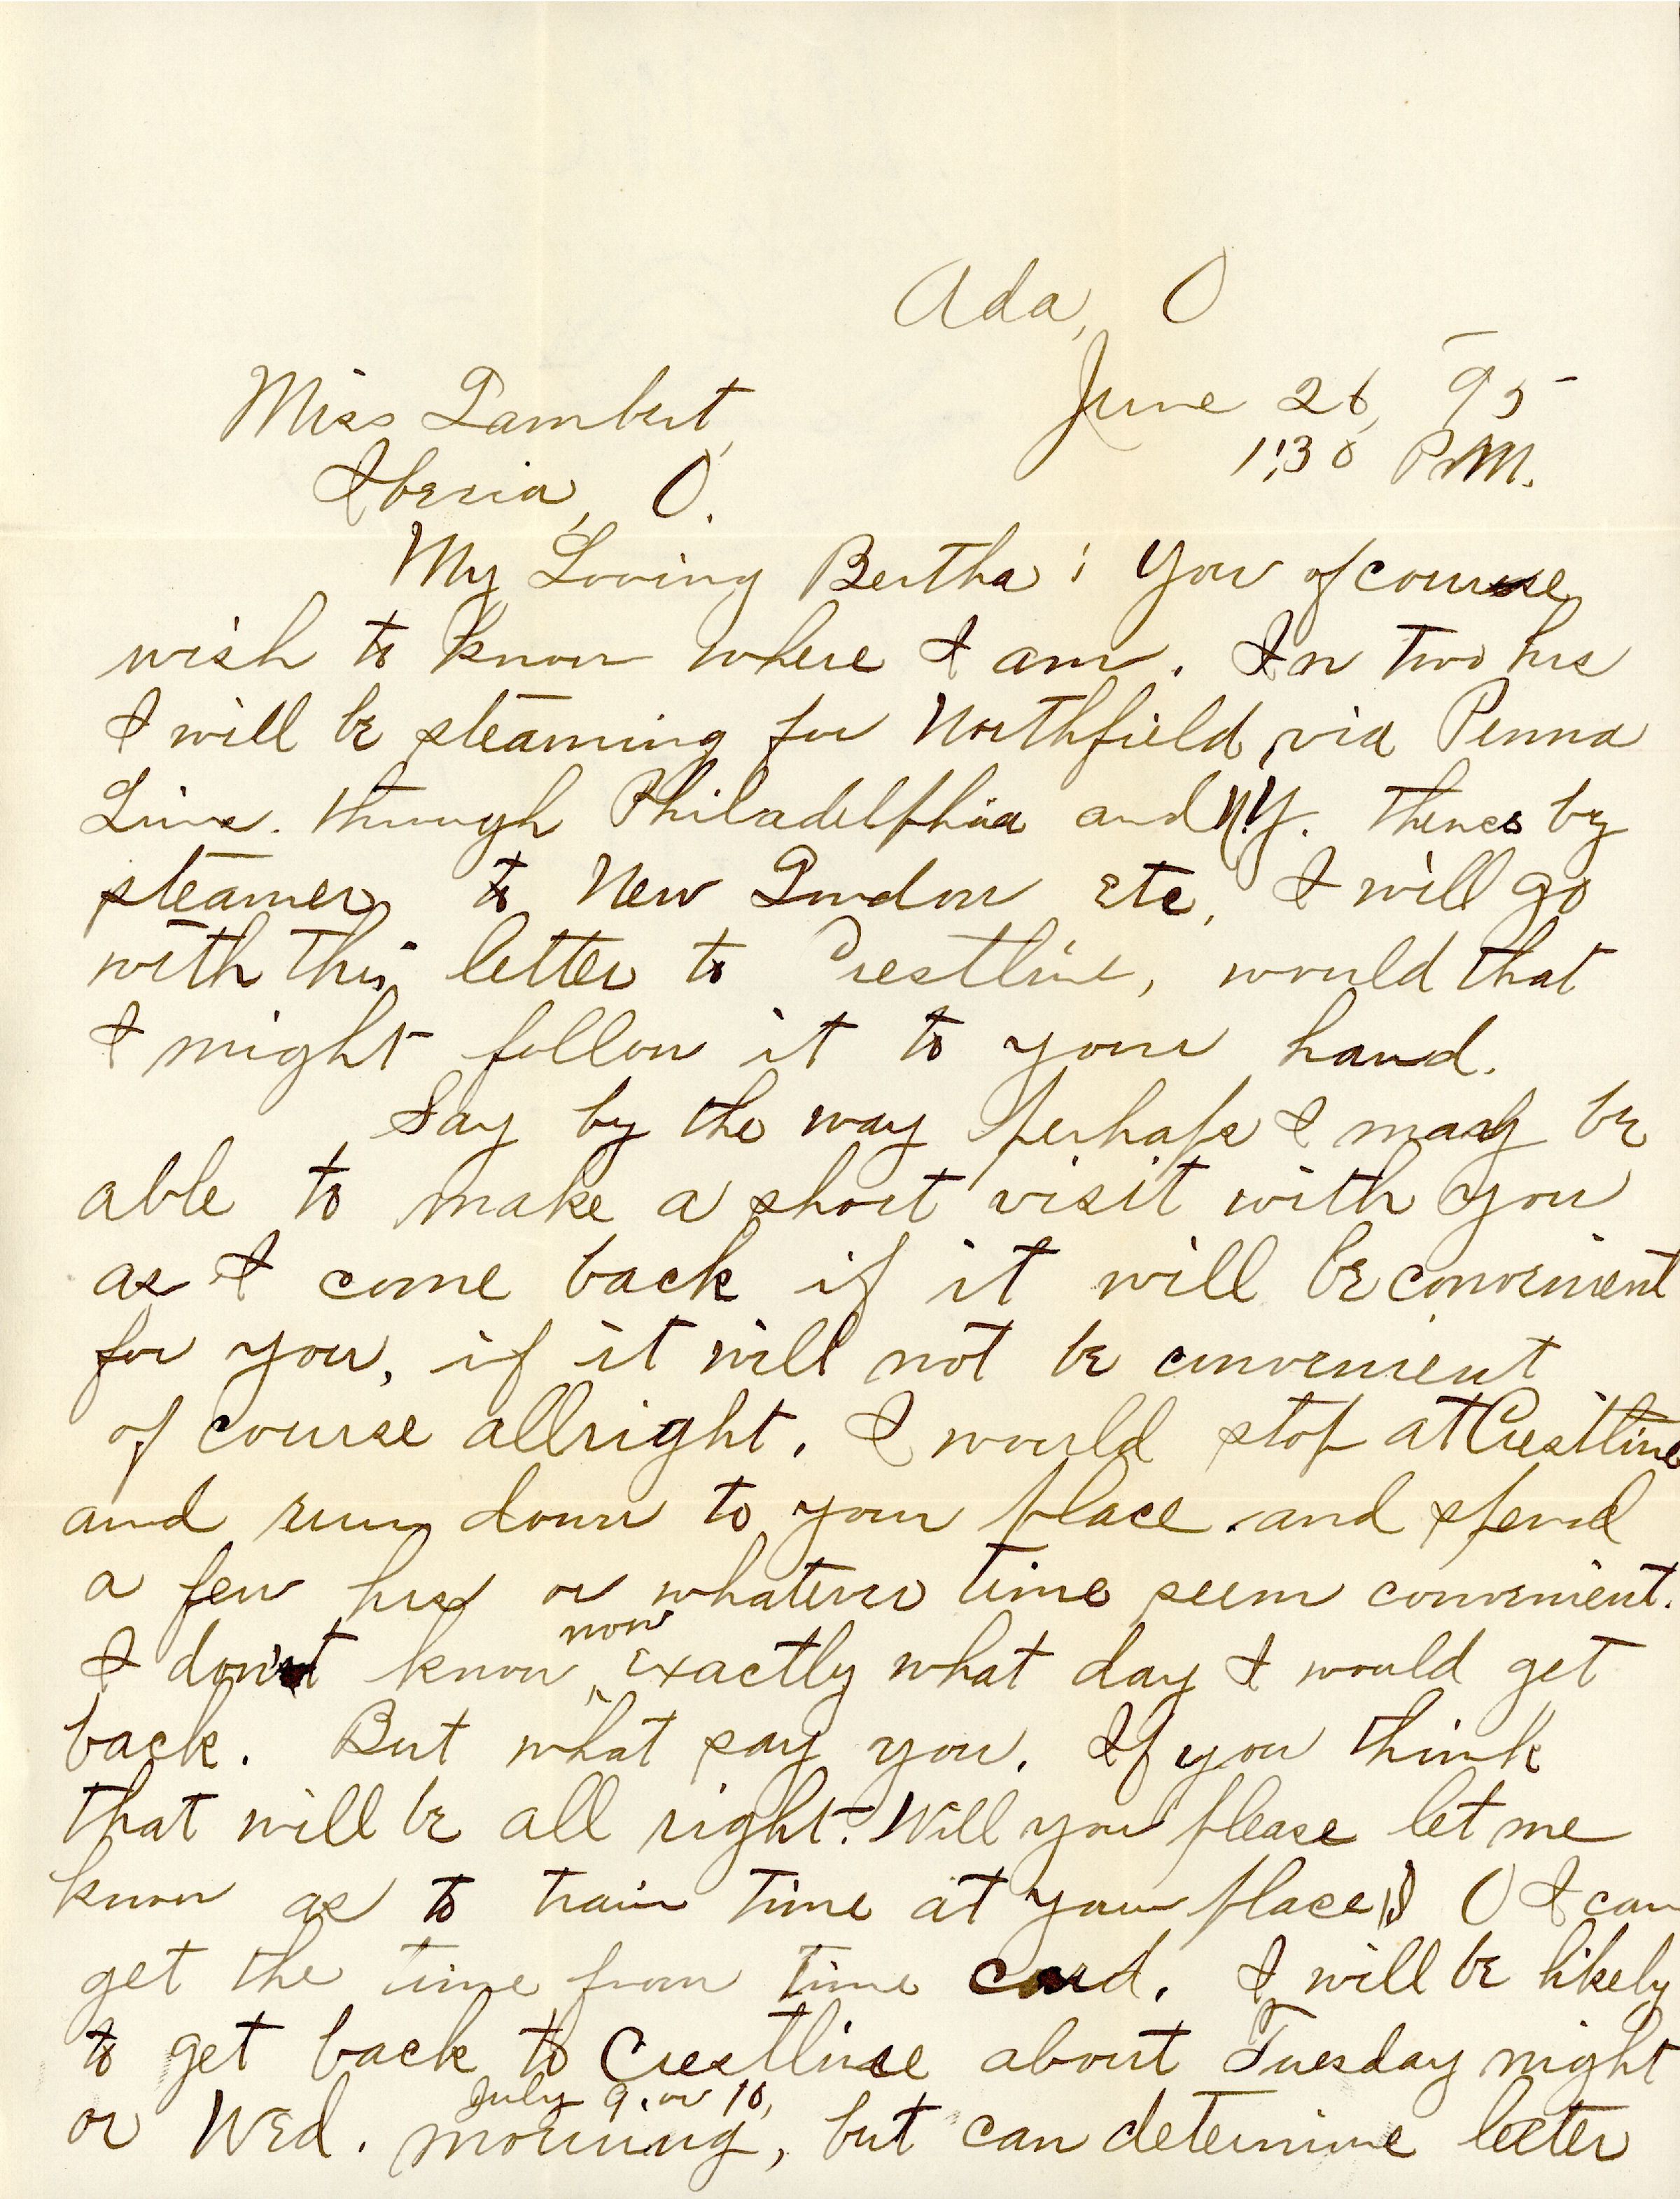 Ada, O
June 26, 95
1:30 P.M.
Miss Lambert,
Iberia, O.
My Loving Bertha: You of course
wish to know where I am. In two hrs
I will be steaming for Northfield, via Penna
Line. through Philadelphia and N.Y. thence by
steamer to New London etc. I will go
with this letter to Crestline, would that
I might follow it to your hand.
Say by the way perhaps I may be
able to make a short visit with you
as I come back if it will be convenient
for you, if it will not be convenient
of course allright. I would stop at Crestline
and run down to your place and spend
a few hrs or whatever time seem convenient.
I don't know now exactly what day I would get
back. But what say you. If you think
that will be all right. Will you please let me
know as to train time at your place O I can
get the time from time card. I will be likely
to get back to Crestline about Tuesday night
or Wed. morning, July 9. or 10, but can determine better